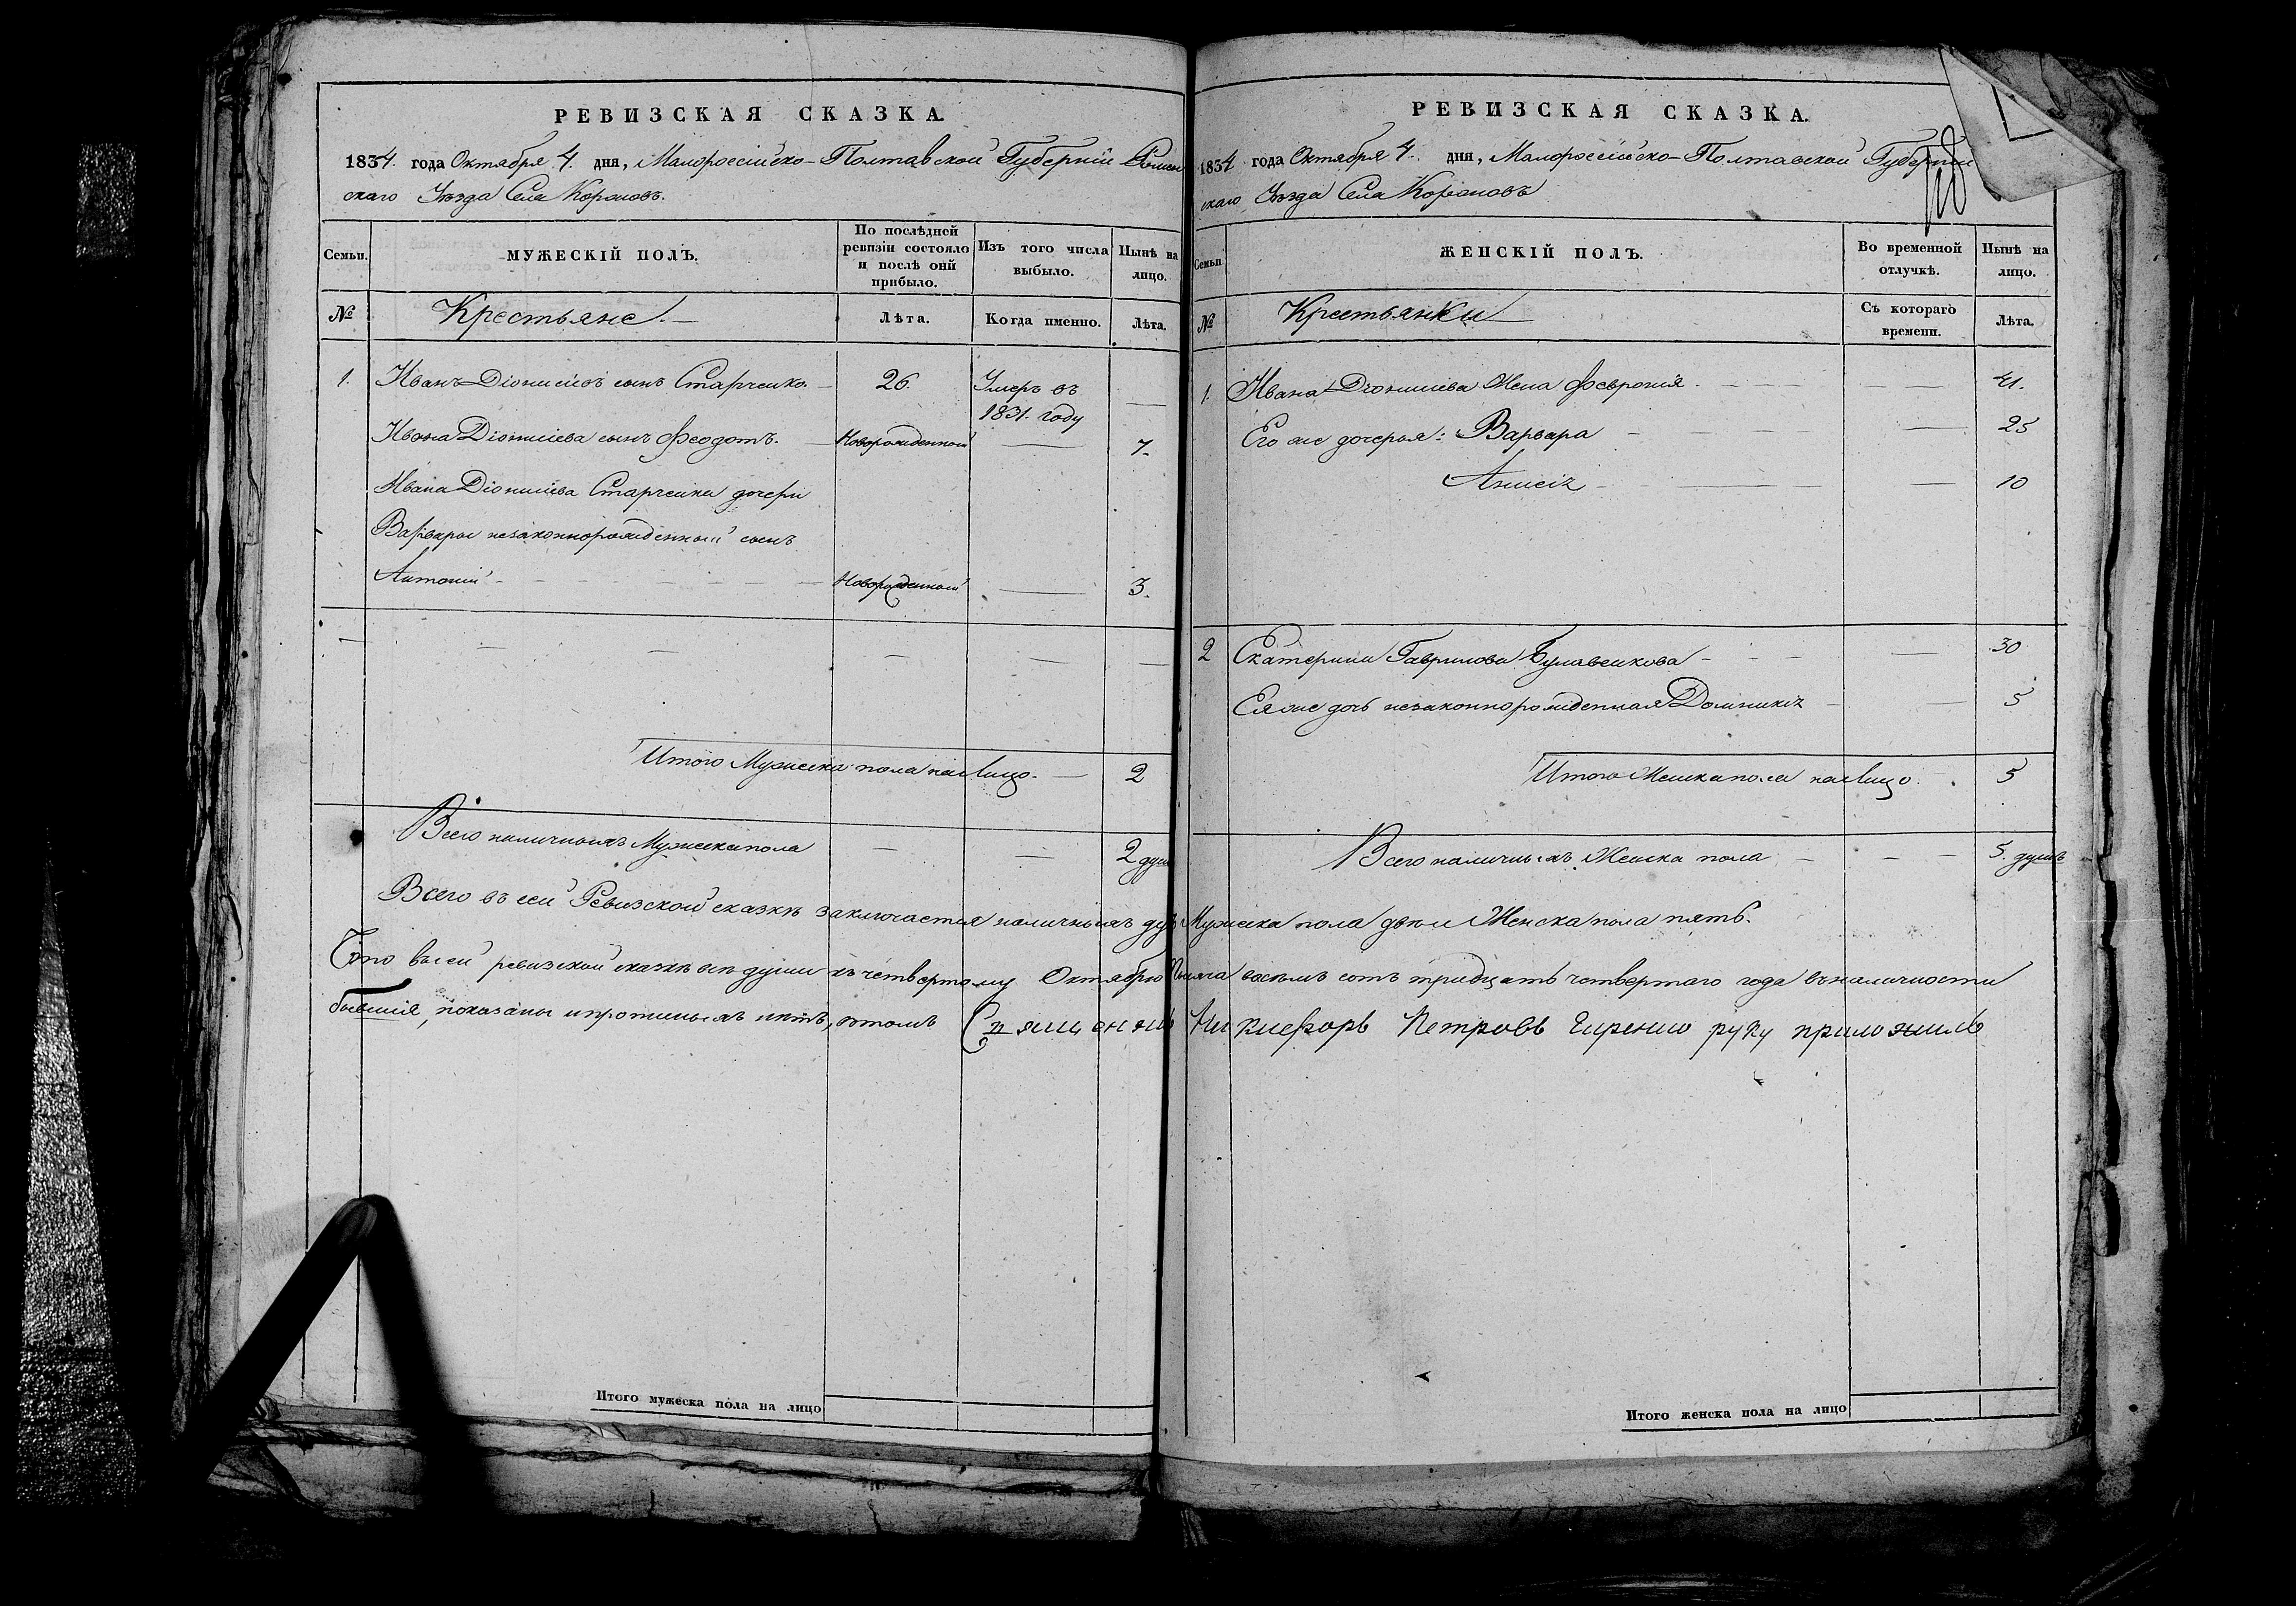 РЕВИЗСКАЯ СКАЗКА.
1834. года Октября 4. дня, Малороссійско-Полтавской Губерніи Ромен
скаго Уѣзда Села Корововъ.
Семьи.
МУЖЕСКІЙ ПОЛЪ.
По послѣдней ревизіи состояло и послѣ оий прибыло.
Изъ того числа выбыло.
Нынѣ на лицо.
№
Крестьяне.
Лѣта.
Когда именно.
Лѣта.
1. Иванъ Діонисіевъ сынъ Старченко. 26. Умеръ въ
1831. году
Ивана Діонисіева сынъ Феодотъ. Новорожденный 7.
Ивана Діонисіева Старченка дочери
Варвары незаконнорожденный сынъ
Антоній Новорожденный 3.
Итого Мужеска пола налицо. 2
Всего наличныхъ Мужеска пола 2 душ
РЕВИЗСКАЯ СКАЗКА.
1834 года Октября 4. дня, Малороссійско-Полтавской Губерніи
скаго Уѣзда Села
Семьи
ЖЕНСКІЙ ПОЛЪ.
Во временной отлучкѣ.
Нынѣ на лицо.
№
Крестьянки
Съ котораго времени.
Лѣта.
1. Ивана Діонисіева Жена Февронія. 41.
Его же дочерья: Варвара 25
Анисія 10
2 Екатерина Гаврилова Булавенкова 30
Ея же дочь незаконнорожденная Домникія 5
Итого Женска пола налицо. 5
Всего наличныхъ Женска пола 5. душъ
Всего въ сей Ревизской сказкѣ заключается наличныхъ душ Мужеска пола двѣ и Женска пола пять.
Что въ сей ревизской сказкѣ всѣ души къ четвертому Октябрю тысяча восемь сотъ тридцать четвертаго года въ наличности
бывшія, показаны и прописныхъ нѣтъ, втомъ Никифоръ Петровъ руку приложилъ
Итого мужеска пола на лицо
Итого женска пола на лицо